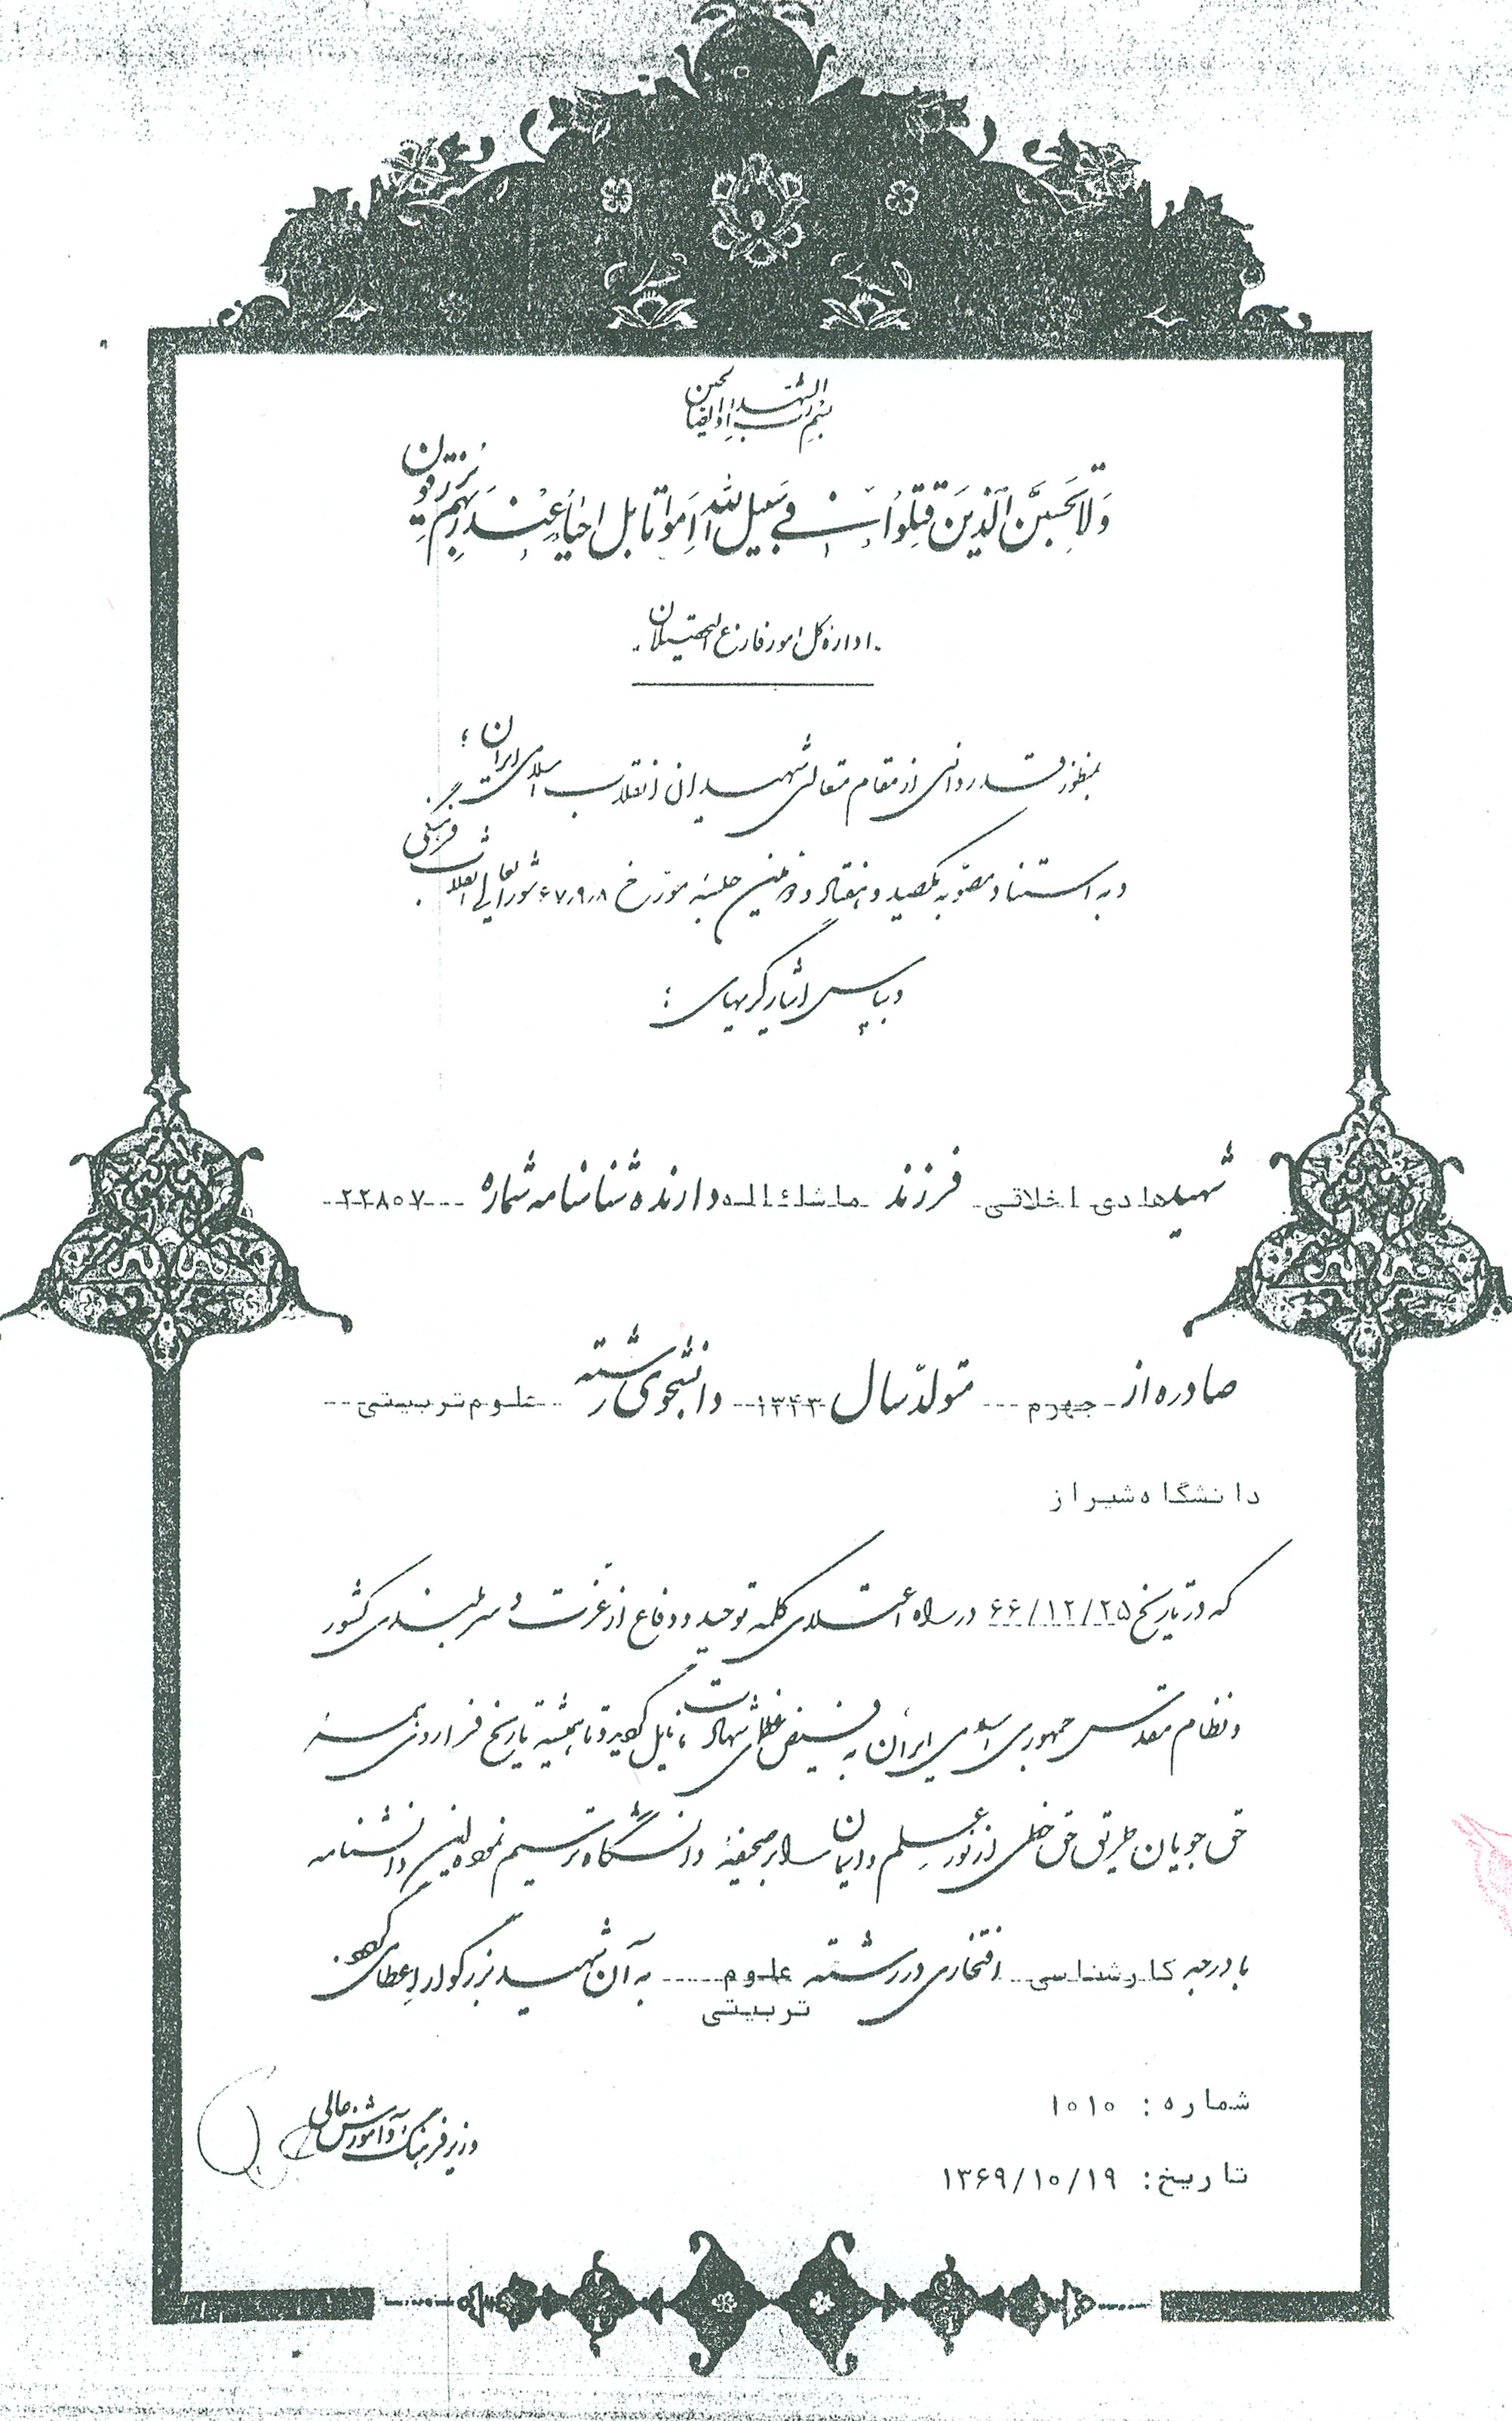 بسم رب الشهداء و الصالحین
وَلا تَحْسَبَنَّ الَّذِینَ قُتِلُوا فِی سَبِیلِ اللّهِ اَمْواتاً بَلْ اَحْیاءٌ عِنْدَ رَبِّهِمْ یُرْزَقُونَ
اداره کل امور فارغ التحصیلان
بمنظور قدردانی از مقام متعالی شهیدان انقلاب اسلامی ایران ؛
و به استناد مصوبه یکصد و هفتاد و دومین جلسه مورخ ۶۷٫۹٫۸ شورایعالی انقلاب فرهنگی
و بپاس ایثارگریهای ؛
شهید هادی اخلاقی فرزند ماشاءاله دارنده شناسنامه شماره ۲۲۸۰۷
صادره از جهرم متولد سال ۱۳۴۳ دانشجوی رشته علوم تربیتی
دانشگاه شیراز
که در تاریخ ۶۶/۱۲/۲۵ در راه اعتلای کلمه توحید و دفاع از عزت و سربلندی کشور
و نظام مقدس جمهوری اسلامی ایران به فیض عظمای شهادت نایل گردید و تا همیشه تاریخ فراروی همه
حق جویان طریق حق خطی از نور علم و ایمان را بر صحیفه دانشگاه ترسیم نمود این دانشنامه
با درجه کارشناسی افتخاری در رشته علوم تربیتی به آن شهید بزرگوار اعطا می گردد.
شماره : ۱۰۱۰
تاریخ: ۱۳۶۹/۱۰/۱۹
وزیر فرهنگ و آموزش عالی